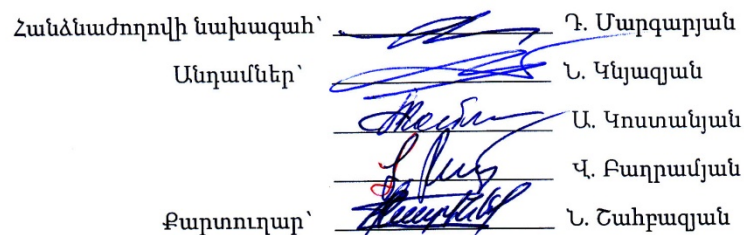 Հանձնաժողովի նախագահ՝ Դ. Մարգարյան
Անդամներ՝ Ն. Կնյազյան
Ա. Կոստանյան
Վ. Բաղրամյան
Քարտուղար՝ Ն. Շահբազյան